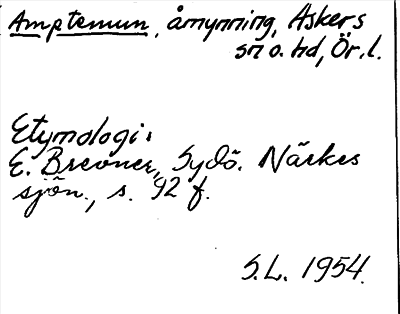 Amptemun, åmynning, Askers
sn o. hd, Ör. l.
Etymologi:
E. Brevner, Sydö. Närkes
sjön., s. 92 f.
S.L. 1954.